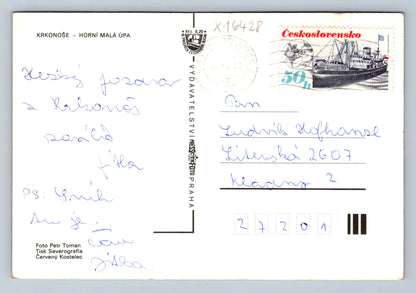 KRKONOŠE – HORNÍ MALÁ ÚPA
X16428
Československo
50 h
Hezký pozdrav
z Krkonoš
zasílá
Jitka
PS: Sníh
tu je.
Jitka
Pan
Ludvík Hofhanse
Litevská 2607
Kladno 2
2 7 2 0 1
VYDAVATELSTVÍ PRAHA
Foto Petr Toman
Tisk Severografia
Červený Kostelec